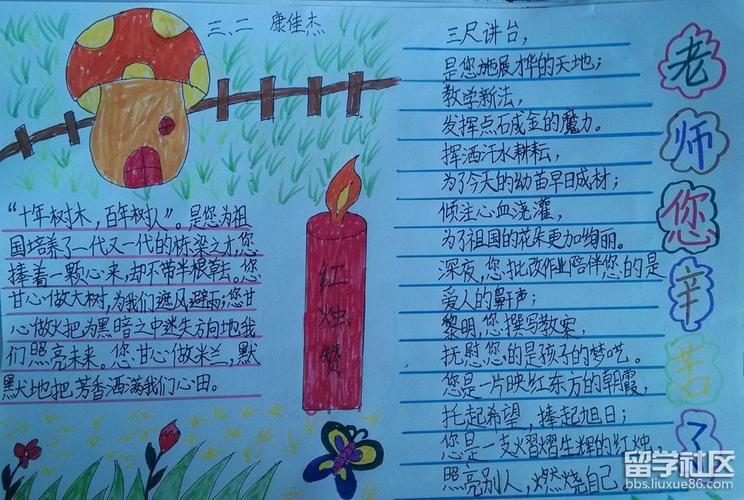 三、二 康佳杰
"十年树木，百年树人"。是您为祖
国培养了一代又一代的栋梁之才，您
捧着一颗心来，却不带半根草去。您
甘心做大树，为我们遮风避雨；您甘
心做火把为黑暗之中迷失方向地我
们照亮未来。您甘心做米兰，默
默地把芳香洒满我们心田。
红烛赞
三尺讲台，
是您施展才华的天地；
教学新法，
发挥点石成金的魔力。
挥洒汗水耕耘，
为了今天的幼苗早日成材；
倾注心血浇灌，
为了祖国的花朵更加绚丽。
深夜，您批改作业陪伴您的是
爱人的鼾声；
黎明，您撰写教案，
抚慰您的是孩子的梦呓。
您是一片映红东方的朝霞，
托起希望，捧起旭日；
您是一支熠熠生辉的红烛，
照亮别人，燃烧自己
老师您辛苦了
留学社区
bbs.liuxue86.com